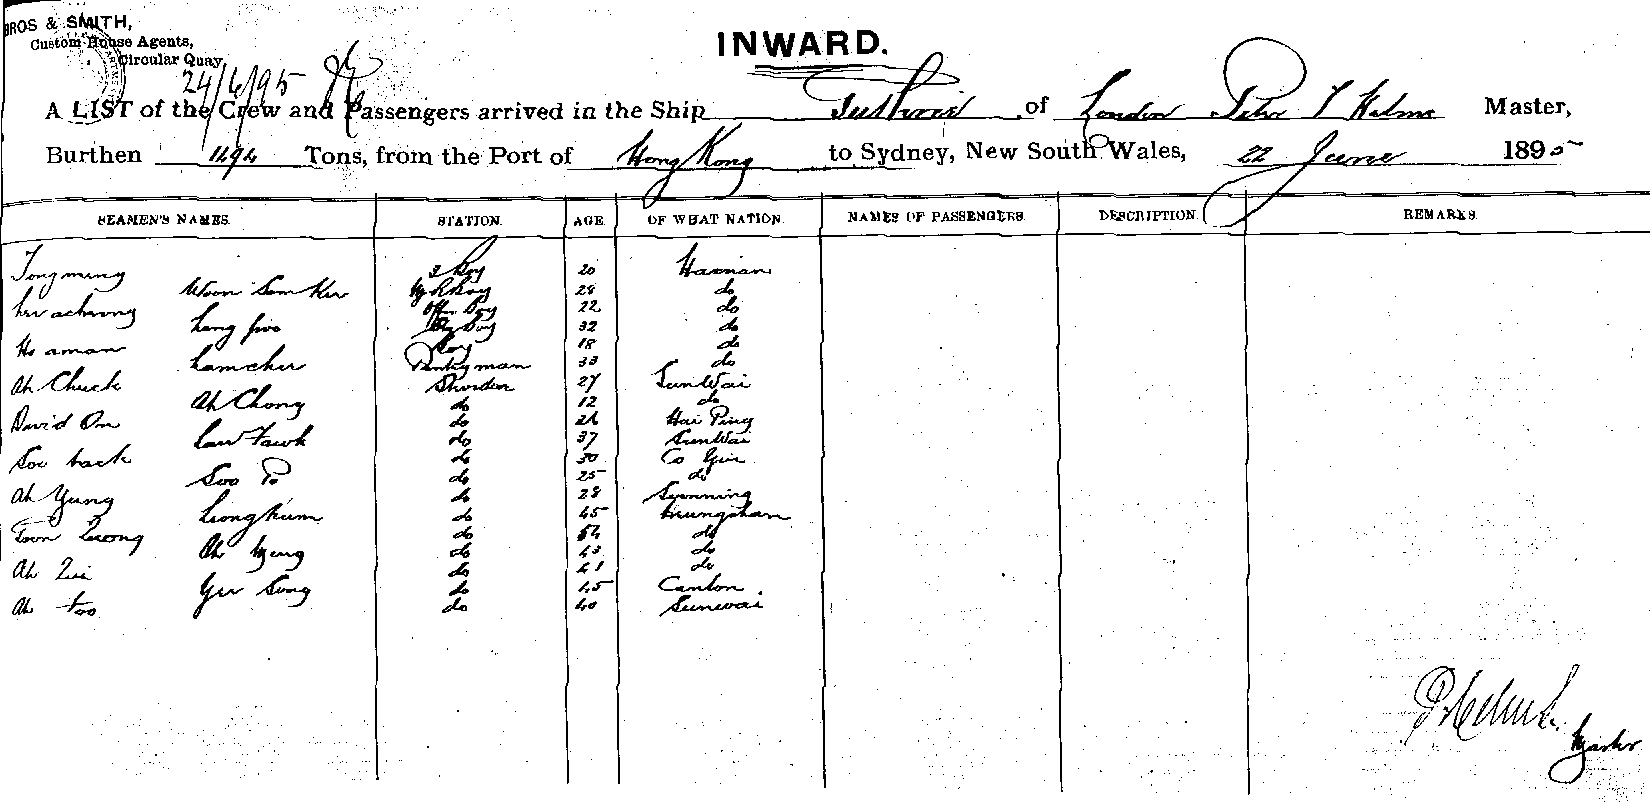 BROS & SMITH,
Custom House Agents,
Circular Quay
24/6/95
INWARD.
A LIST of the Crew and Passengers arrived in the Ship of London Peter T Helms Master,
Burthen 1494 Tons, from the Port of Hong Kong to Sydney, New South Wales, 22 June 1895
SEAMEN'S NAMES. STATION. AGE OF WHAT NATION. NAMES OF PASSENGERS. DESCRIPTION. REMARKS.
Tongming 3 Boy 20 Hainan
Woon Som Kee Boy 28 do
22 do
Boy 32 do
Ho aman Boy 18 do
Lamcher Pantryman 33 do
Ah Chuck 27 SunWai
Ah Chong do 12 do
David On do 24 Hai Ping
Law Fawk do 37 SunWai
do 30
Soo Po do 25 do
Ah Yung do 28 Sunning
Leong kum do 45
do 54 do
Ah do 43 do
Ah do 41 do
Yee Song do 45 Canton.
Ah Foo do 40 Sunwai
Master